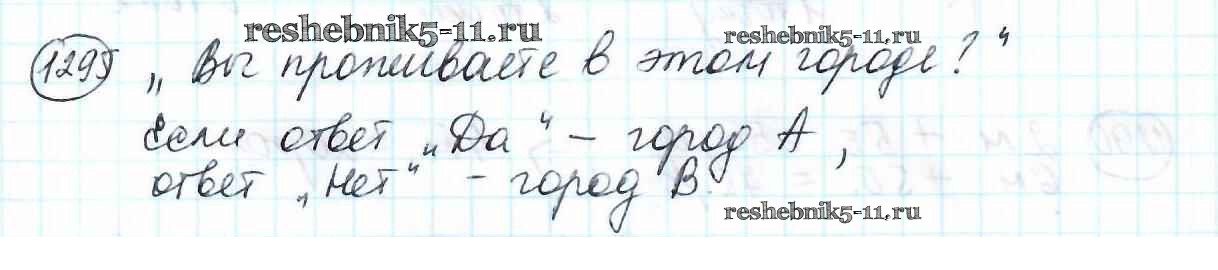 reshebnik5-11.ru
reshebnik5-11.ru
1295 „Вы проживаете в этом городе?“
Если ответ „Да“ – город А,
ответ „Нет“ – город В.
reshebnik5-11.ru